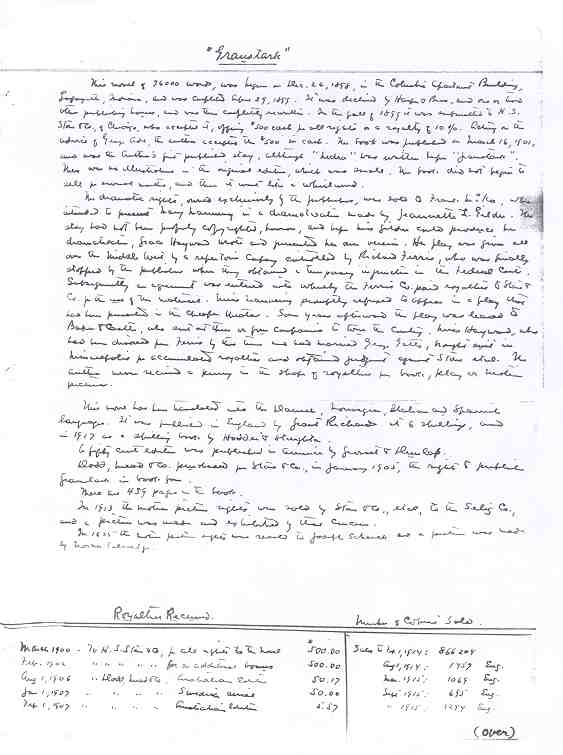 "Graustark"
This novel of 96000 words, was begun on Dec. 26, 1898, in the Columbia Apartment Building,
Lafayette, Indiana, and was completed 29, 1899. It was declined by Harper Bros, and one or two
other publishing houses, and was then completely rewritten. In the fall of 1899 it was submitted to H. S.
Stone & Co., of Chicago, who accepted it, offering $500 cash for all rights or a royalty of 10%. Acting on the
advice of George Ade, the author accepted the $500 in cash. The book was published on March 16, 1901,
and was the author's first published story, although was written before "Graustark".
There were no illustrations in the original edition, which was small. The book did not begin to
sell for several months, and then it went like a whirlwind.
The dramatic rights, owned exclusively by the publishers, were sold to & Co., who
intended to present Mary Mannering in a dramatization made by Jeannette L. Gilder. The
story had not been properly copyrighted, however, and before Miss Gilder could produce her
dramatization, Grace Hayward wrote and presented her own version. Her play was given all
over the Middle West by a repertoire Company controlled by Richard Ferris, who was finally
stopped by the publishers when they obtained a temporary injunction in the Federal Court.
Subsequently an agreement was entered into whereby the Ferris Co. paid royalties to Stone &
Co. for the use of the material. Miss Mannering promptly refused to appear in a play that
had been presented in the cheaper theater. Some years afterward the play was leased to
Baker & Castle, who sent out three or four companies to tour the country. Miss Hayward, who
had been divorced from Ferris by this time and had married George Gatts, brought suit in
Minneapolis for accumulated royalties and obtained judgment against Stone et al. The
author never received a penny in the shape of royalties from book, play or motion
picture.
This novel has been translated into the Danish, Norwegian, Italian and Spanish
languages. It was published in England by Grant Richards at 6 shillings, and
in 1917 as a shilling book by Hodder & Stoughton.
A fifty cent edition was published in America by Grosset & Dunlap.
Dodd, Mead & Co. purchased from Stone & Co., in January 1905, the right to publish
Graustark in book form.
There are 459 pages in the book.
In 1913, the motion picture rights were sold by Stone & Co., et al, to the Selig Co.,
and a picture was made and exhibited by that Concern.
In 1925 the motion picture rights were resold to Joseph Schenck and a picture was made
by Norma Talmadge.
Royalties Received. Number of Copies Sold.
March 1900 - To H. S. Stone & Co, for all rights to the novel $500.00 Sales to 1, 1914: 866204
Feb. 1902 " " " " " for a additional bonus 500.00 Aug 1, 1914: 1757 Eng.
Aug 1, 1906 " Dodd, Mead & Co. Australian Edition 50.17 1915: 1069 Eng.
Jan 1, 1907 " " " " Sunday serial 50.00 Sept 1915: 695 Eng.
1, 1907 " " " " Australian Edition 5.57 " 1915: 1274 Eng.
(over)